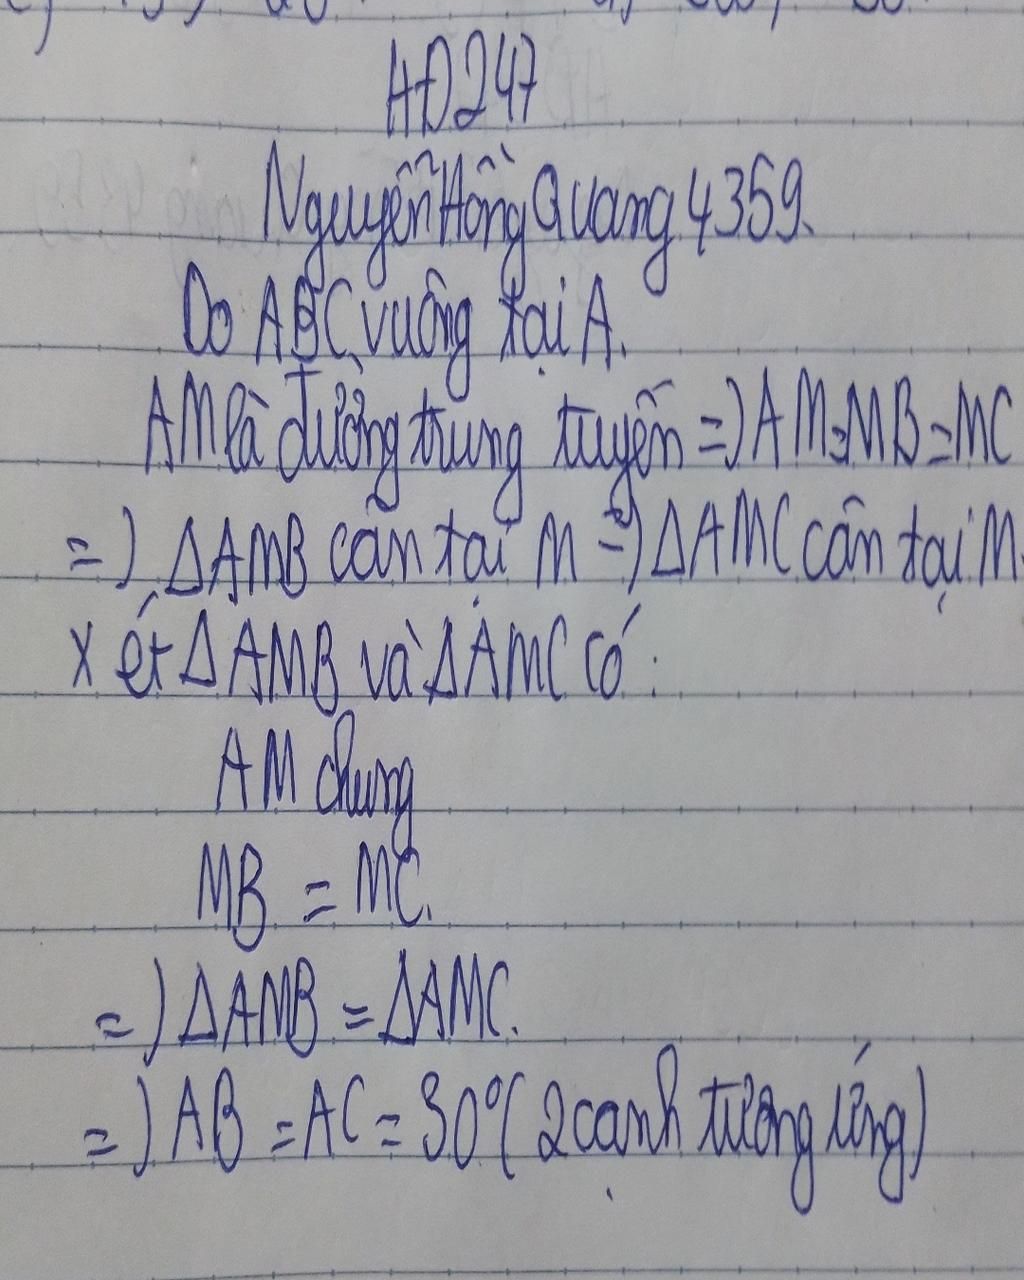 HĐ247
Nguyễn Hồng Quang 4359.
Do ABC vuông tại A.
AM là đường trung tuyến =) AM=MB=MC
=) ΔAMB cân tại M =) ΔAMC cân tại M.
Xét ΔAMB và ΔAMC có:
AM chung
MB = MC.
=) ΔAMB = ΔAMC.
=) AB = AC = 30° (2 cạnh tương ứng)